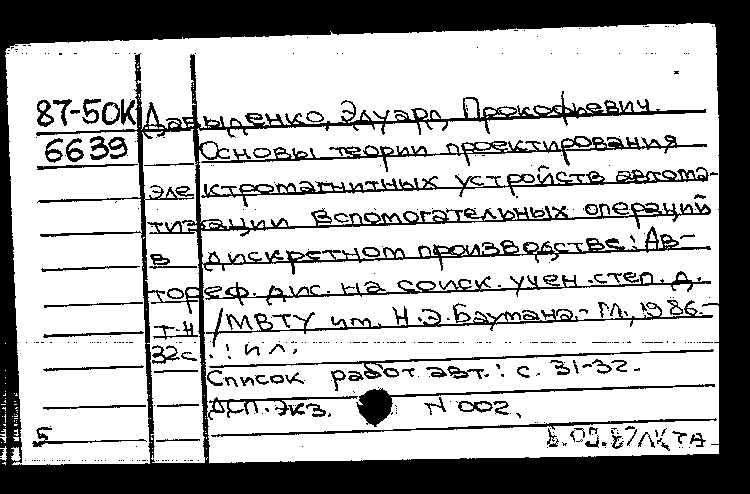 87-50К Давыденко, Эдуард Прокофьевич.
6639 Основы теории проектирования
электромагнитных устройств автома-
тизации вспомогательных операций
в дискретном производстве: Ав-
тореф. дис. на соиск. учен. степ. д.
т.н /МВТУ им. Н.Э.Баумана.- М., 1986.-
32с.: ил.
Список работ авт.: с. 31-32.
ДСП. экз. N 002.
5 8.09.87